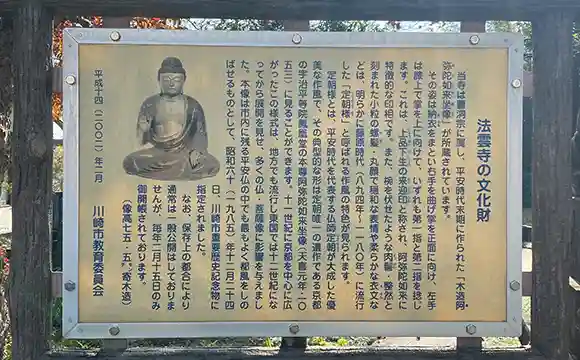 法雲寺の文化財
当寺は曹洞宗に属し、平安時代末期に作られた「木造阿
弥陀如来坐像」が所蔵されています。
その姿は納衣をまとい右手を曲げ掌を正面に向け、左手
は膝上で掌を上に向けて、いずれも第一指と第二指を捻じ
ます。これは、上品下生の来迎印と称され、阿弥陀如来に
特徴的な印相です。また、椀を伏せたような肉髻・整然と
刻まれた小粒の螺髪・丸顔で穏和な表情や柔らかな衣文な
どは、明らかに藤原時代（八九四年～一一八〇年）に流行
した「定朝様」と呼ばれる作風の特色が見られます。
定朝様とは、平安時代を代表する仏師定朝が大成した優
美な作風で、その典型的な形は定朝唯一の遺作である京都
の宇治平等院鳳凰堂の本尊阿弥陀如来坐像（天喜元年・一〇
五三）に見ることができます。十一世紀に京都を中心に広
がったこの様式は、地方でも流行し東国では十二世紀にな
ってから展開を見せ、多くの仏・菩薩像に影響を与えまし
た。本像は市内に残る平安仏の中でも最もよく都風をしの
ばせるものとして、昭和六十一（一九八五）年十二月二十四
日、川崎市重要歴史記念物に
指定されました。
なお、保存上の都合により
通常は一般公開はしておりま
せんが、毎年一月十五日のみ
御開帳されております。
（像高七五・五㌢、寄木造）
平成十四（二〇〇二）年二月
川崎市教育委員会